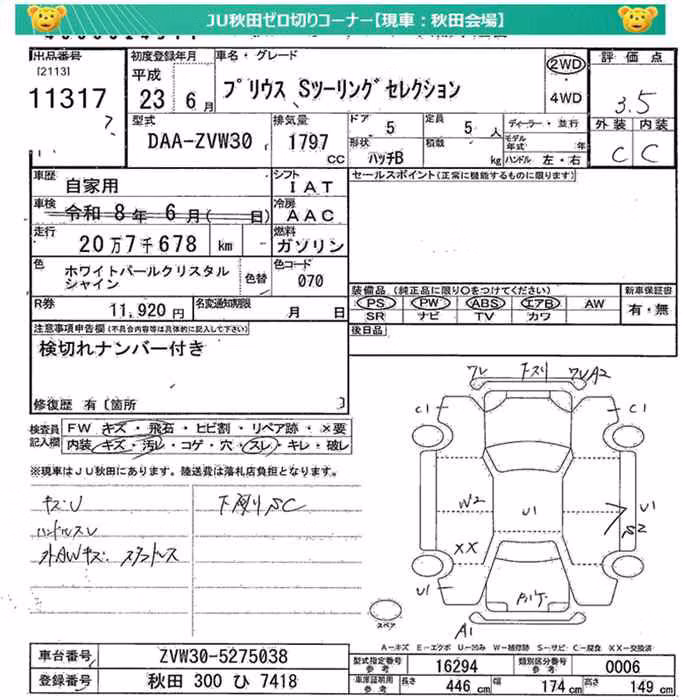 JU秋田ゼロ切りコーナー【現車：秋田会場】
出品番号 初度登録年月 車名・グレード 評価点
[2113] 平成
11317 23年 6月 プリウス Sツーリングセレクション 2WD 4WD 3.5
型式 排気量 ドア 5 定員 5人 ディーラー・並行 外装 内装
DAA-ZVW30 1797 CC 形状 ハッチB 積載 kg モデル年式 年 C C
ハンドル 左・右
車歴 自家用 シフト IAT セールスポイント(正常に機能するものに限ります)
車検 令和 8年 6月( 日) 冷房 AAC
走行 20万7千678 km 燃料 ガソリン
色 ホワイトパールクリスタルシャイン 色替 色コード 070
装備品 (純正品に限り○をつけてください) 新車保証書
PS PW ABS エアB AW 有・無
SR ナビ TV カワ
R券 11,920円 名変通知期限 月 日
後日品
注意事項申告欄(不具合内容等は具体的に記入して下さい)
検切れナンバー付き
修復歴 有〔箇所 〕
検査員記入欄 FW キズ・飛石・ヒビ割・リペア跡・×要
内装 キズ・汚レ・コゲ・穴・スレ・キレ・破レ
※現車はJU秋田にあります。陸送費は落札店負担となります。
キズU 下廻りSC
ハンドルスレ
外AWキズ
ワレ 下スリ ワレA2
C1 C1
W2 U1 U1
S2
XX
U1
A1
スペア
A-キズ E-エクボ U-凹み W-補修跡 S-サビ C-腐食 XX-交換済
車台番号 ZVW30-5275038 型式指定番号 参考 16294 類別区分番号 参考 0006
登録番号 秋田 300 ひ 7418 車庫証明用 参考 長さ 446 cm 幅 174 cm 高さ 149 cm